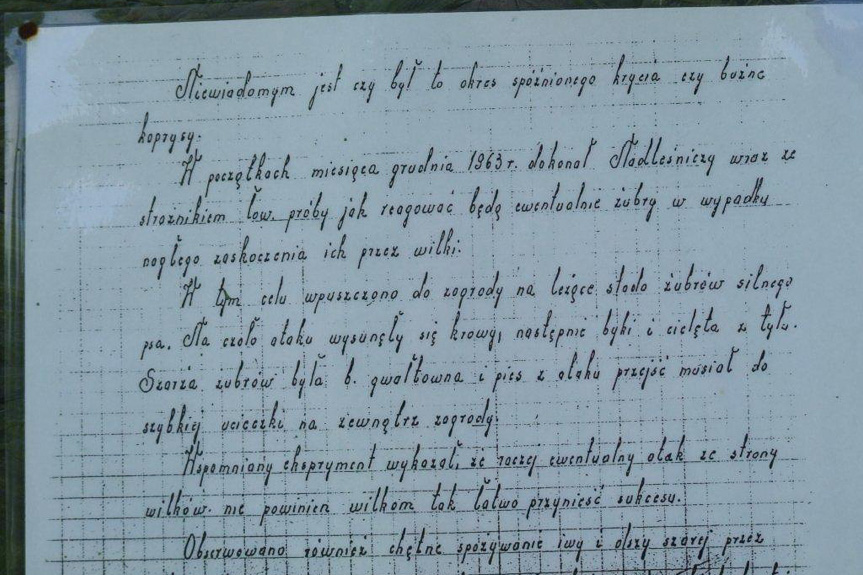 Niewiadomym jest czy był to okres spóźnionego krycia czy boźne
koprysy.
W początkach miesiąca grudnia 1963 r. dokonał Nadleśniczy wraz ze
strażnikiem łow. próby jak reagować będą ewentualnie żubry w wypadku
nagłego zaskoczenia ich przez wilki.
W tym celu wpuszczono do zagrody na leżące stado żubrów silnego
psa. Na czoło ataku wysunęły się krowy, następnie byki i cielęta z tyłu.
Szarża żubrów była b. gwałtowna i pies z ataku przejść musiał do
szybkiej ucieczki na zewnątrz zagrody.
Wspomniany ekspryment wykazał, że raczej ewentualny atak ze strony
wilków nie powinien wilkom tak łatwo przynieść sukcesu.
Obserwowano również chętne spożywanie iwy i olszy szarej przez